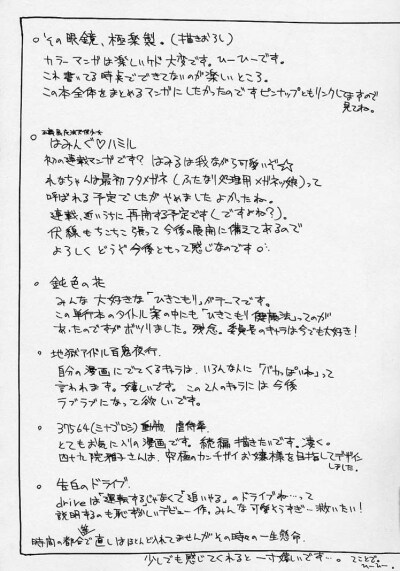 ○その眼鏡、極楽製。(描きおろし)
カラーマンガは楽しいけど大変です。ひーひーです。
これ書いてる時点でできてないのが楽しいところ。
この本全体をまとめるマンガにしたかったのですピンナップともリンクしますので
見てね。
○
はみんぐ♡ハミル
初の連載マンガです?はみるは我ながら可愛いぞ☆
れなちゃんは最初フタメガネ(ふたなり処理用メガネっ娘)って
呼ばれる予定でしたがやめましたよかったね。
連載、近いうちに再開する予定です(ですよね?)。
伏線もちこちこ張って今後の展開に備えてあるので
よろしくどうぞ今後ともって感じなのです
○鈍色の花
みんな大好きな「ひきこもり」がテーマです。
この単行本のタイトル案の中にも「ひきこもり健脚法」ってのが
あったのですがボツりました。残念。委員長のキャラは今でも大好き!
○地獄アイドル百鬼夜行.
自分の漫画にでてくるキャラは、いろんな人に「バカっぽいね」って
言われます。嬉しいです。この2人のキャラには今後
ラブラブになって欲しいです。
○37564(ミナゴロシ)動物虐待
とてもお気に入りの漫画です。続編描きたいです。凄く。
四十九院雅子さんは、究極のカンチガイお嬢様を目指してデザイン
しました。
○告白のドライブ
driveは「運転するじゃなくて「追いやる」のドライブね…って
説明するのも恥ずかしいデビュー作。みんな可愛そうすぎ…救いたい!
時間の都合で直しはほとんど入れてませんがその時々の一生懸命.
少しでも感じてくれると一寸嬉しいです…。てことで。